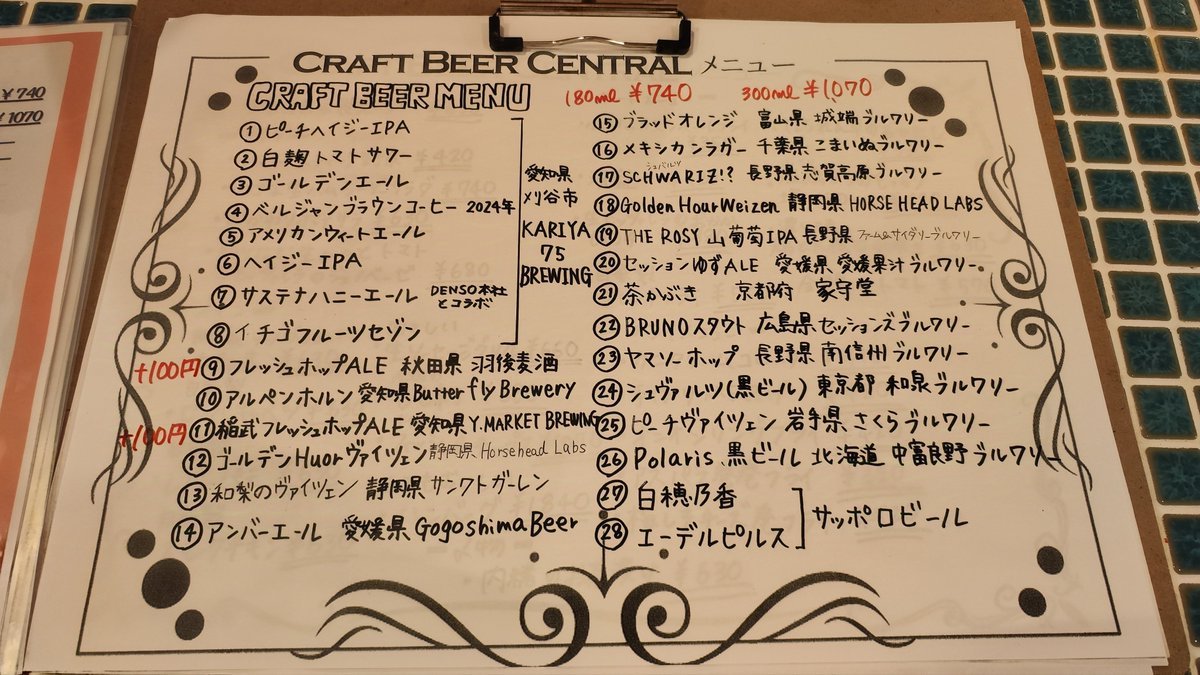 ¥740
¥1070
CRAFT BEER CENTRAL メニュー
CRAFT BEER MENU
180ml ¥740 300ml ¥1,070
① ピーチヘイジーIPA
② 白麹トマトサワー
③ ゴールデンエール
④ ベルジャンブラウンコーヒー 2024年
⑤ アメリカンウィートエール
⑥ ヘイジーIPA
⑦ サステナハニーエール DENSO本社とコラボ
⑧ イチゴフルーツセゾン
愛知県
刈谷市
KARIYA
75
BREWING
+100円 ⑨ フレッシュホップALE 秋田県 羽後麦酒
⑩ アルペンホルン 愛知県Butterfly Brewery
+100円 ⑪ 稲武フレッシュホップALE 愛知県 Y.MARKET BREWING
⑫ ゴールデンHuorヴァイツェン 静岡県 Horsehead Labs
⑬ 和梨のヴァイツェン 静岡県 サンクトガーレン
⑭ アンバーエール 愛媛県 Gogoshima Beer
⑮ ブラッドオレンジ 富山県 城端ブルワリー
⑯ メキシカンラガー 千葉県 こまいぬブルワリー
シュバルツ
⑰ SCHWARIZ!? 長野県 志賀高原ブルワリー
⑱ Golden Hour Weizen 静岡県 HORSE HEAD LABS
⑲ THE ROSY 山葡萄IPA 長野県 ファーム&サイダリーブルワリー
⑳ セッションゆずALE 愛媛県 愛媛果汁ブルワリー
㉑ 茶かぶき 京都府 家守堂
㉒ BRUNOスタウト 広島県 セッションズブルワリー
㉓ ヤマソーホップ 長野県 南信州ブルワリー
㉔ シュヴァルツ(黒ビール) 東京都 和泉ブルワリー
㉕ ピーチヴァイツェン 岩手県 さくらブルワリー
㉖ Polaris 黒ビール 北海道 中富良野ブルワリー
㉗ 白穂乃香
㉘ エーデルピルス
サッポロビール